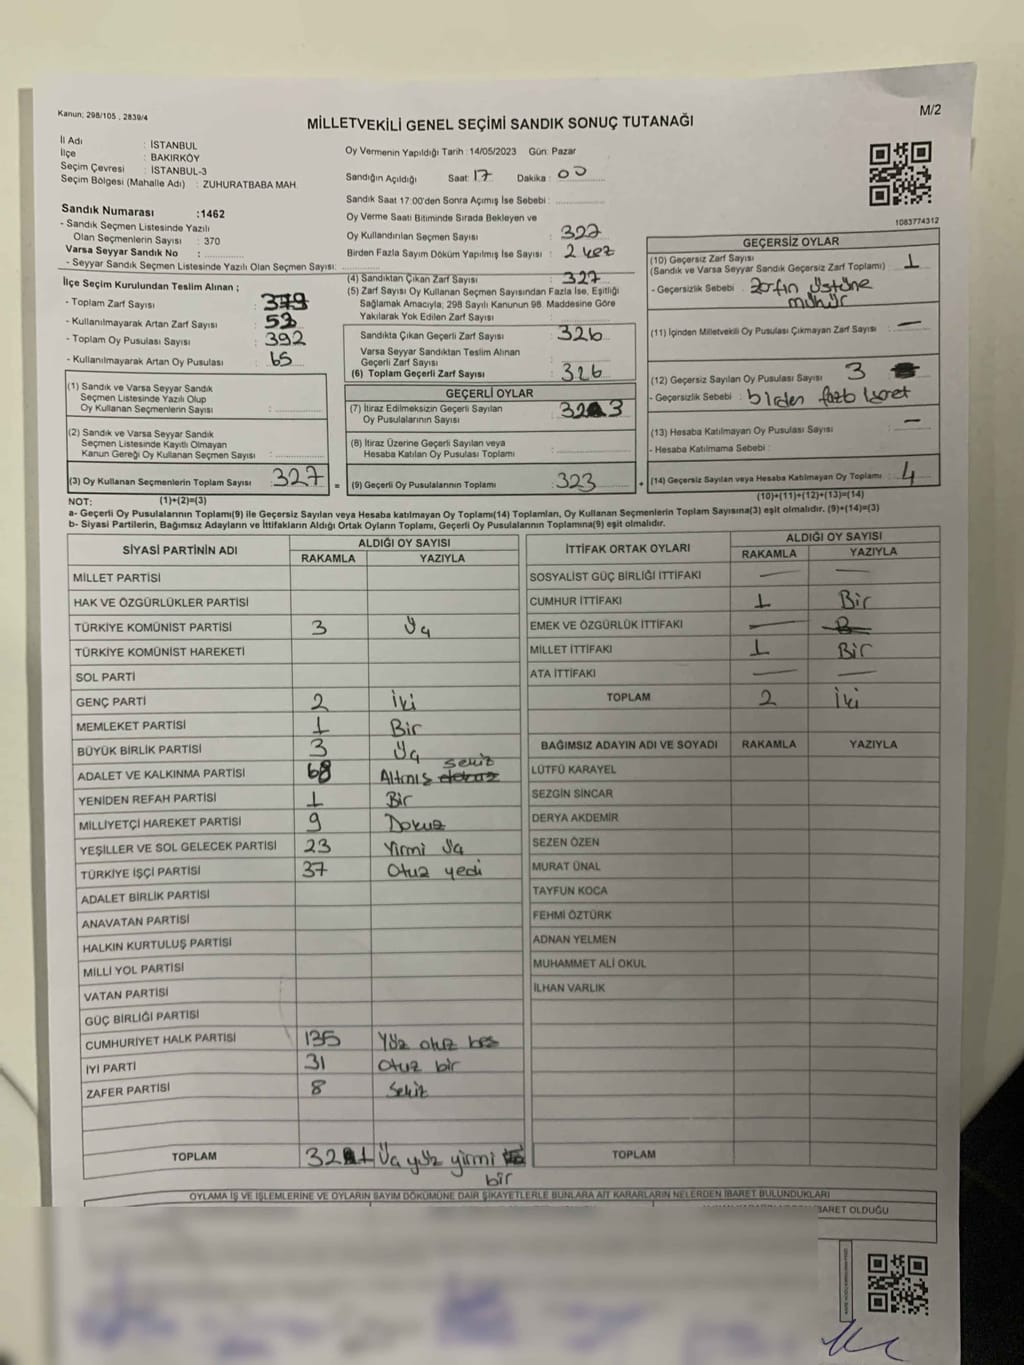 Kanun: 298/105 , 2839/4
M/2
MİLLETVEKİLİ GENEL SEÇİMİ SANDIK SONUÇ TUTANAĞI
İl Adı : İSTANBUL
İlçe : BAKIRKÖY
Seçim Çevresi : İSTANBUL-3
Seçim Bölgesi (Mahalle Adı) : ZUHURATBABA MAH.
Sandık Numarası :1462
- Sandık Seçmen Listesinde Yazılı
Olan Seçmenlerin Sayısı : 370
Varsa Seyyar Sandık No :
- Seyyar Sandık Seçmen Listesinde Yazılı Olan Seçmen Sayısı:
İlçe Seçim Kurulundan Teslim Alınan ;
- Toplam Zarf Sayısı : 379
- Kullanılmayarak Artan Zarf Sayısı : 52
- Toplam Oy Pusulası Sayısı : 392
- Kullanılmayarak Artan Oy Pusulası : 65
(1) Sandık ve Varsa Seyyar Sandık
Seçmen Listesinde Yazılı Olup
Oy Kullanan Seçmenlerin Sayısı :
(2) Sandık ve Varsa Seyyar Sandık
Seçmen Listesinde Kayıtlı Olmayan
Kanun Gereği Oy Kullanan Seçmen Sayısı :
(3) Oy Kullanan Seçmenlerin Toplam Sayısı : 327 =
Oy Vermenin Yapıldığı Tarih :14/05/2023 Gün: Pazar
Sandığın Açıldığı Saat: 17 Dakika : 00
Sandık Saat 17:00'den Sonra Açımış İse Sebebi :
Oy Verme Saati Bitiminde Sırada Bekleyen ve
Oy Kullandırılan Seçmen Sayısı : 327
Birden Fazla Sayım Döküm Yapılmış İse Sayısı : 2 kez
(4) Sandıktan Çıkan Zarf Sayısı : 327
(5) Zarf Sayısı Oy Kullanan Seçmen Sayısından Fazla İse, Eşitliği
Sağlamak Amacıyla; 298 Sayılı Kanunun 98. Maddesine Göre
Yakılarak Yok Edilen Zarf Sayısı :
Sandıkta Çıkan Geçerli Zarf Sayısı : 326
Varsa Seyyar Sandıktan Teslim Alınan
Geçerli Zarf Sayısı
(6) Toplam Geçerli Zarf Sayısı : 326
GEÇERLİ OYLAR
(7) İtiraz Edilmeksizin Geçerli Sayılan
Oy Pusulalarının Sayısı : 323
(8) İtiraz Üzerine Geçerli Sayılan veya
Hesaba Katılan Oy Pusulası Toplamı :
(9) Geçerli Oy Pusulalarının Toplamı : 323 +
1083774312
GEÇERSİZ OYLAR
(10) Geçersiz Zarf Sayısı
(Sandık ve Varsa Seyyar Sandık Geçersiz Zarf Toplamı) : 1
- Geçersizlik Sebebi : Zarfın Üstüne
mühür
(11) İçinden Milletvekili Oy Pusulası Çıkmayan Zarf Sayısı : —
(12) Geçersiz Sayılan Oy Pusulası Sayısı : 3
- Geçersizlik Sebebi : birden fazla işaret
(13) Hesaba Katılmayan Oy Pusulası Sayısı : —
- Hesaba Katılmama Sebebi :
(14) Geçersiz Sayılan veya Hesaba Katılmayan Oy Toplamı : 4
NOT: (1)+(2)=(3)
(10)+(11)+(12)+(13)=(14)
a- Geçerli Oy Pusulalarının Toplamı(9) ile Geçersiz Sayılan veya Hesaba katılmayan Oy Toplamı(14) Toplamları, Oy Kullanan Seçmenlerin Toplam Sayısına(3) eşit olmalıdır. (9)+(14)=(3)
b- Siyasi Partilerin, Bağımsız Adayların ve İttifakların Aldığı Ortak Oyların Toplamı, Geçerli Oy Pusulalarının Toplamına(9) eşit olmalıdır.
SİYASİ PARTİNİN ADI ALDIĞI OY SAYISI
RAKAMLA YAZIYLA
MİLLET PARTİSİ
HAK VE ÖZGÜRLÜKLER PARTİSİ
TÜRKİYE KOMÜNİST PARTİSİ 3 Üç
TÜRKİYE KOMÜNİST HAREKETİ
SOL PARTİ
GENÇ PARTİ 2 İki
MEMLEKET PARTİSİ 1 Bir
BÜYÜK BİRLİK PARTİSİ 3 Üç
ADALET VE KALKINMA PARTİSİ 68 Altmış sekiz
YENİDEN REFAH PARTİSİ 1 Bir
MİLLİYETÇİ HAREKET PARTİSİ 9 Dokuz
YEŞİLLER VE SOL GELECEK PARTİSİ 23 Yirmi Üç
TÜRKİYE İŞÇİ PARTİSİ 37 Otuz yedi
ADALET BİRLİK PARTİSİ
ANAVATAN PARTİSİ
HALKIN KURTULUŞ PARTİSİ
MİLLİ YOL PARTİSİ
VATAN PARTİSİ
GÜÇ BİRLİĞİ PARTİSİ
CUMHURİYET HALK PARTİSİ 135 Yüz otuz beş
İYİ PARTİ 31 Otuz bir
ZAFER PARTİSİ 8 Sekiz
TOPLAM 321 Üç yüz yirmi
bir
İTTİFAK ORTAK OYLARI ALDIĞI OY SAYISI
RAKAMLA YAZIYLA
SOSYALİST GÜÇ BİRLİĞİ İTTİFAKI — —
CUMHUR İTTİFAKI 1 Bir
EMEK VE ÖZGÜRLÜK İTTİFAKI — —
MİLLET İTTİFAKI 1 Bir
ATA İTTİFAKI — —
TOPLAM 2 İki
BAĞIMSIZ ADAYIN ADI VE SOYADI RAKAMLA YAZIYLA
LÜTFÜ KARAYEL
SEZGİN SİNCAR
DERYA AKDEMİR
SEZEN ÖZEN
MURAT ÜNAL
TAYFUN KOCA
FEHMİ ÖZTÜRK
ADNAN YELMEN
MUHAMMET ALİ OKUL
İLHAN VARLIK
TOPLAM
OYLAMA İŞ VE İŞLEMLERİNE VE OYLARIN SAYIM DÖKÜMÜNE DAİR ŞİKAYETLERLE BUNLARA AİT KARARLARIN NELERDEN İBARET BULUNDUKLARI
İBARET OLDUĞU